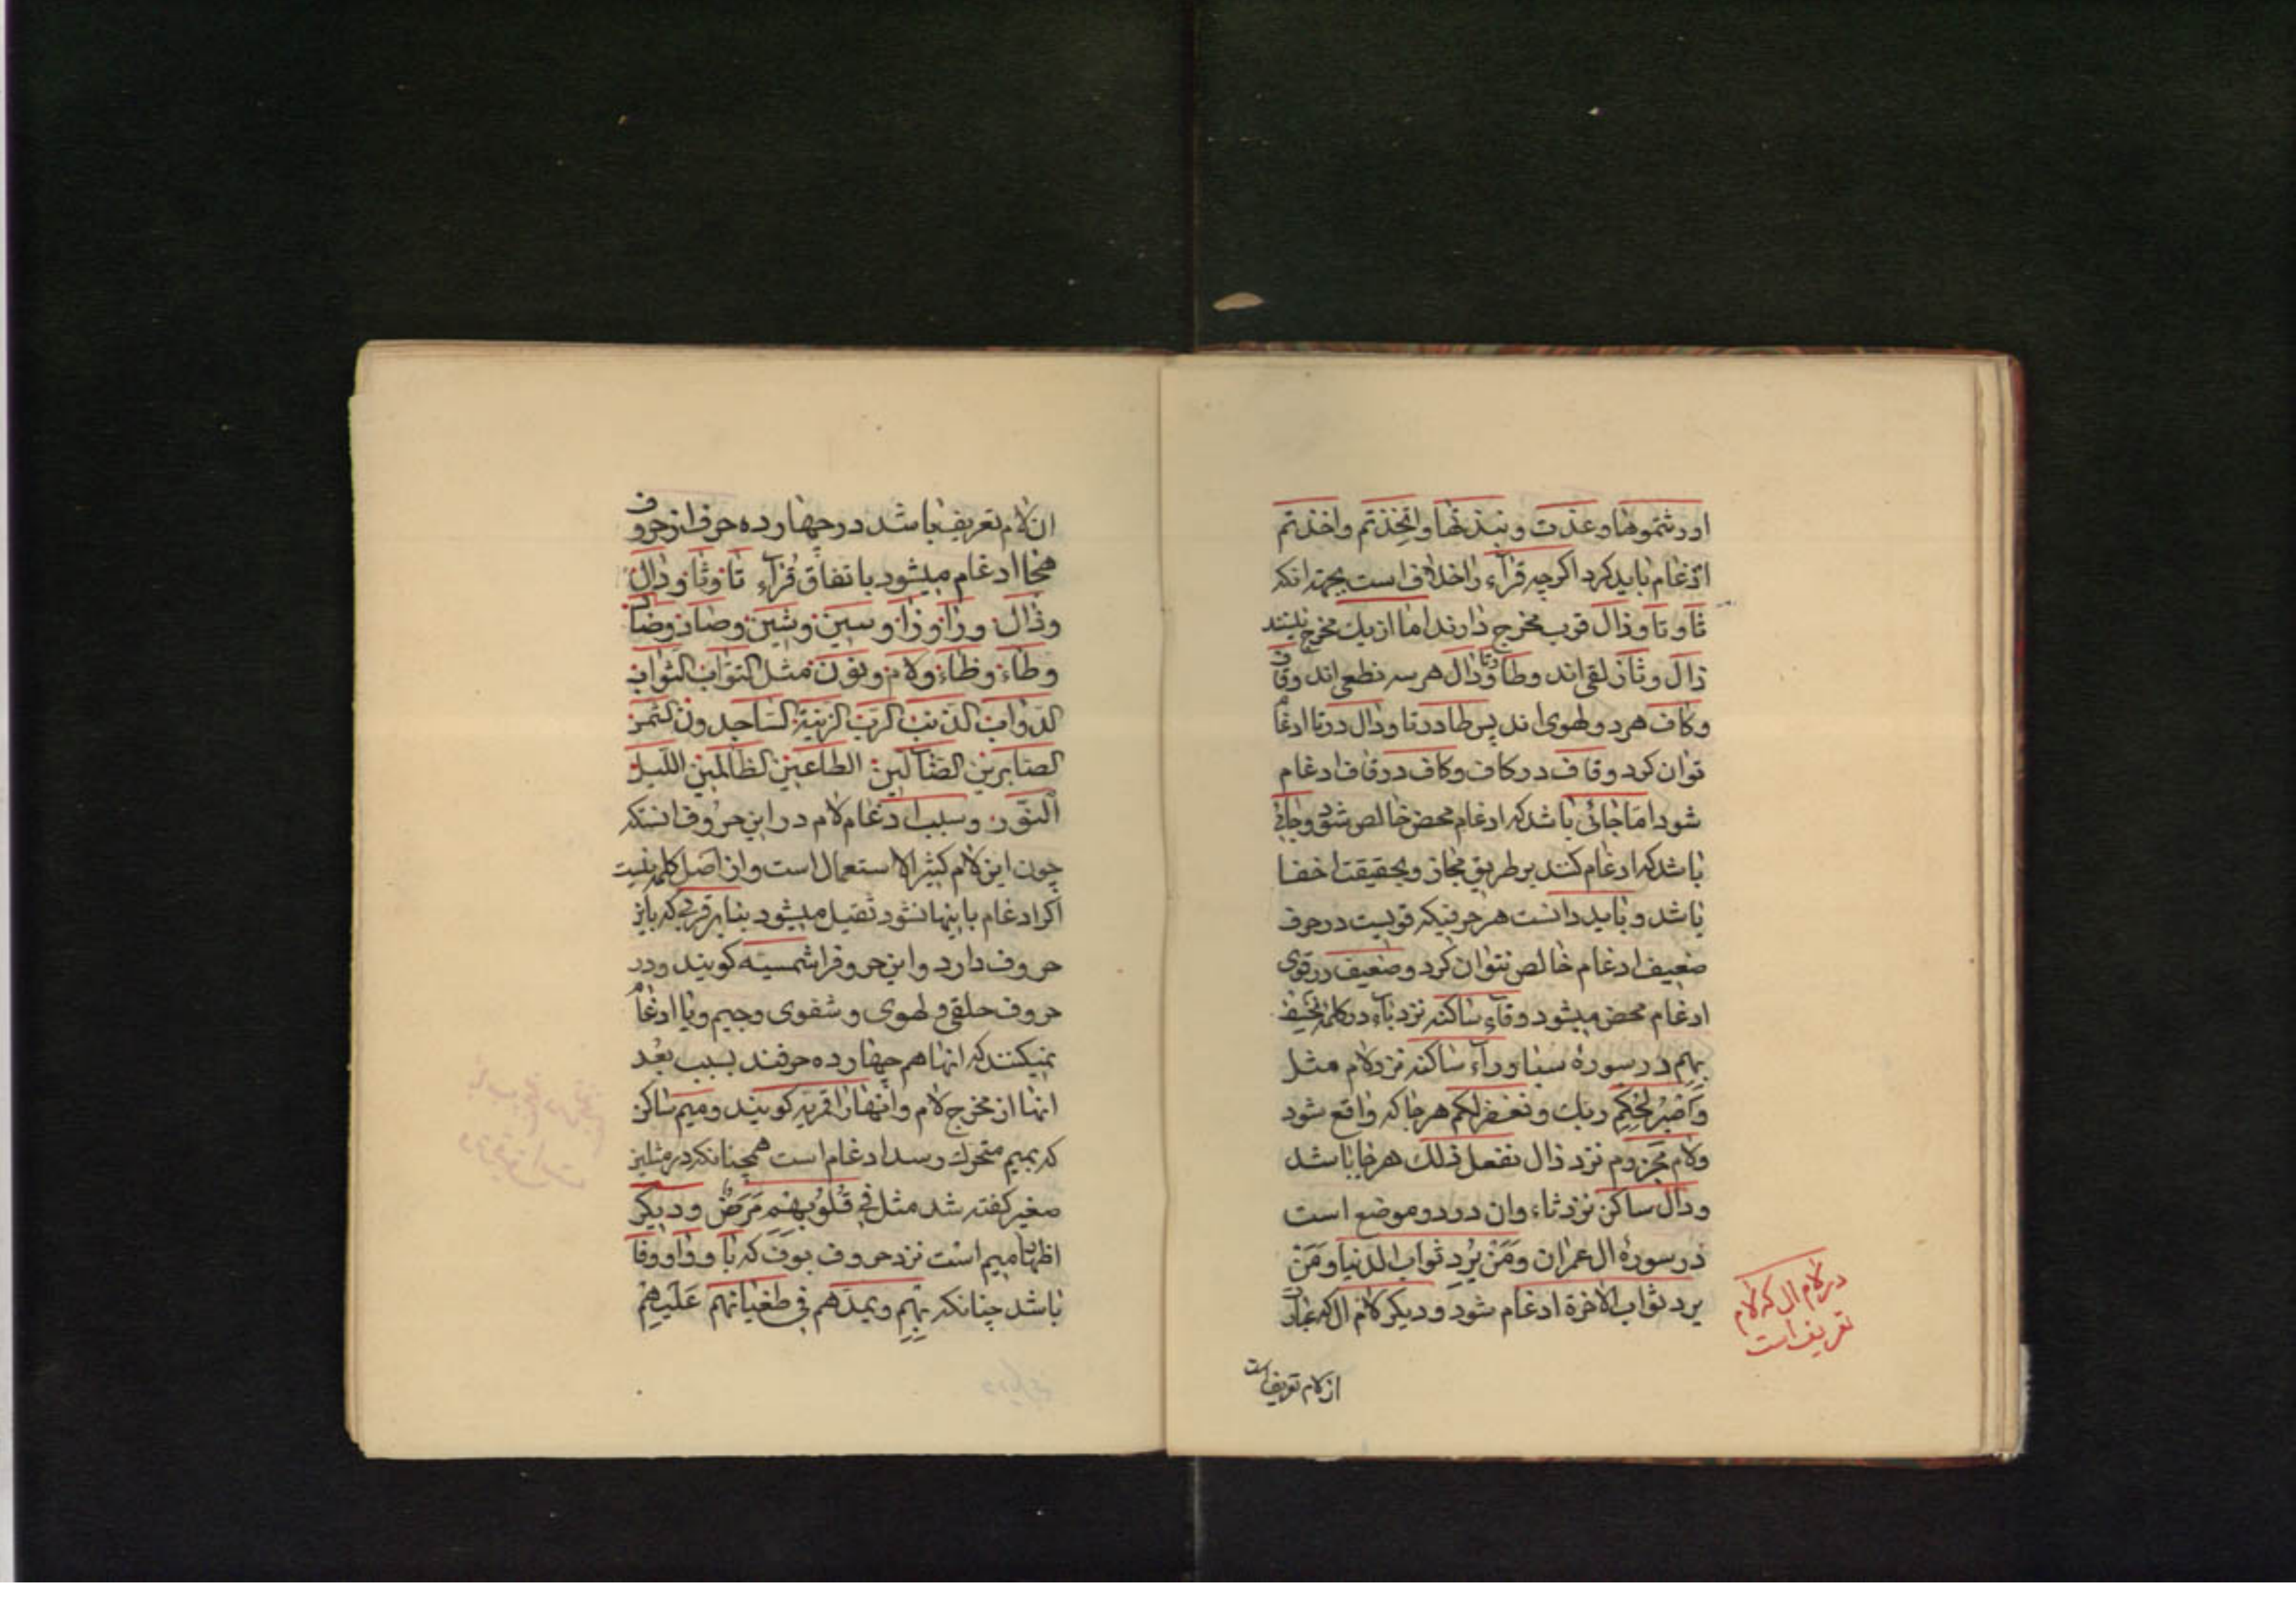 اورثتموها و عذت و نبذتها و اتخذتم و اخذتم
ادغام باید کرد اکرچه قرآء را خلاف است بجهة انکه
ثا و تا و ذال قرب مخرج دارند اما از یك مخرج نیستند
ذال و ثا ذلقی اند و طا و تا و دال هر سه نطعی اند و قاف
و کاف هر دو لهوی اند پس طا در تا و دال در تا ادغام
توان کرد و قاف در کاف و کاف در قاف ادغام
شود اما جائی باشد که ادغام محض خالص شود و جائی
باشد که ادغام کنند بر طریق مجاز و بحقیقت اخفا
باشد و باید دانست هر حرفیکه قویست در حرف
ضعیف ادغام خالص نتوان کرد و ضعیف در قوی
ادغام محض میشود و فآء ساکنه نزد بآء در کلمه نخسف
بهم در سورهٔ سبا و رآء ساکنه نزد لام مثل
وَاصْبِرْ لِحُکْمِ ربك و نغفر لکم هر جا که واقع شود
ولام مجزوم نزد ذال یفعل ذلك هر جا باشد
ودال ساکن نزد ثاء وان در دو موضع است
در سورهٔ ال عمران وَمَنْ یُرِدِ ثواب الدنیا وَمَنْ
یرد ثواب الاخرة ادغام شود و دیکر لام ال که عبارت
در لام ال که لام
تعریف است
از لام تعریف است
ان لام تعریف باشد در چهارده حرف از حروف
هجا ادغام میشود باتفاق قُرّآء تا و ثا و دال
وذال و را و زا و سین و شین و صاد و ضاد
وطاء و ظاء و لام و نون مثل التواب الثواب
الدواب الذنب الرب الزینة الساجدون الشمس
الصابرین الضآلین الطاعین الظالمین اللیل
النور و سبب ادغام لام در این حروف انستکه
چون این لام کثیر الاستعمال است و از اصل کلمه نیست
اکر ادغام باینها نشود ثقیل میشود بنا بر قربی که باین
حروف دارد و این حروفرا شمسیّه کویند و در
حروف حلقی و لهوی و شفوی و جیم و یا ادغام
نمیکنند که انها هم چهارده حرفند بسبب بُعد
انها از مخرج لام و انها را قمریه کویند و میم ساکن
که بمیم متحرك رسد ادغام است همچنانکه در مثلین
صغیر کفته شد مثل فی قُلُوبِهِم مَرَضٌ و دیکر
اظهار میم است نزد حروف بوف که با و واو و فا
باشد چنانکه بِهِم و یمدهم فی طغیانهم عَلَیهِمْ